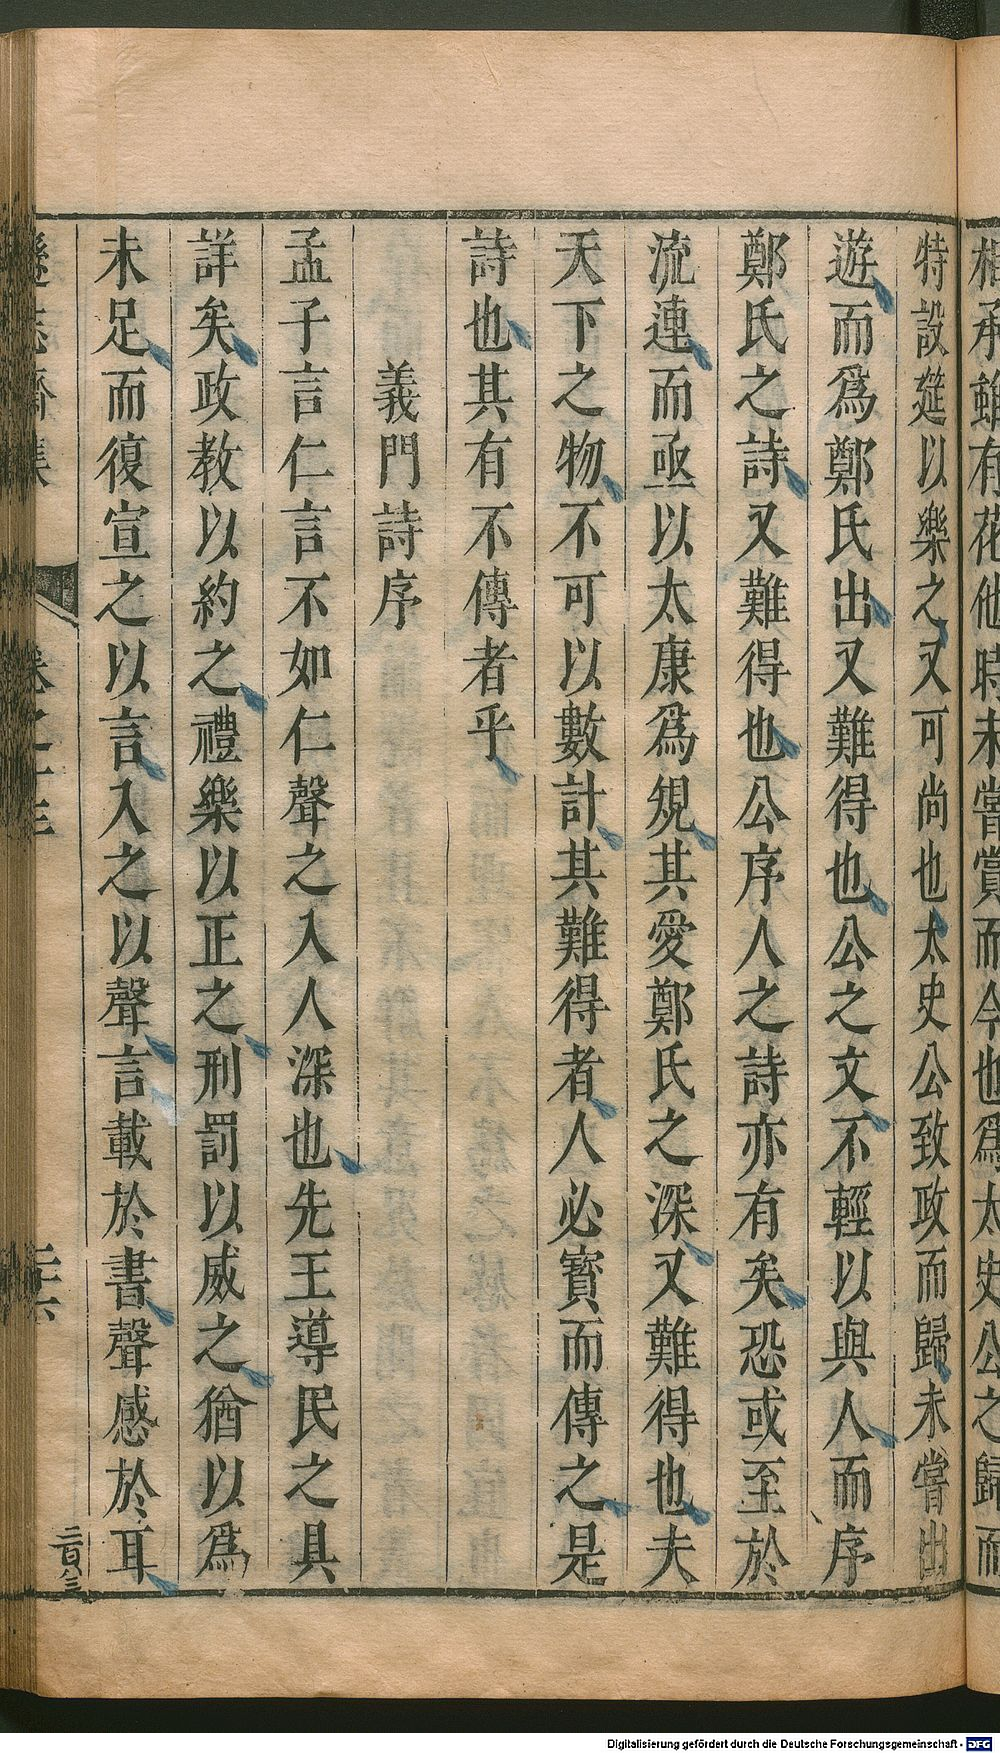 相承雖有花他時未嘗賞而今也爲太史公之歸而
特設筵以樂之又可尚也太史公致政而歸未嘗出
遊而爲鄭氏出又難得也公之文不輕以與人而序
鄭氏之詩又難得也公序人之詩亦有矣恐或至於
流連而亟以太康爲規其愛鄭氏之深又難得也夫
天下之物不可以數計其難得者人必寳而傳之是
詩也其有不傳者乎
義門詩序
孟子言仁言不如仁聲之入人深也先王導民之具
詳矣政教以約之禮樂以正之刑罰以威之猶以爲
未足而復宣之以言入之以聲言載於書聲感於耳
遜志齋集 卷之十三
Digitalisierung gefördert durch die Deutsche Forschungsgemeinschaft - DFG